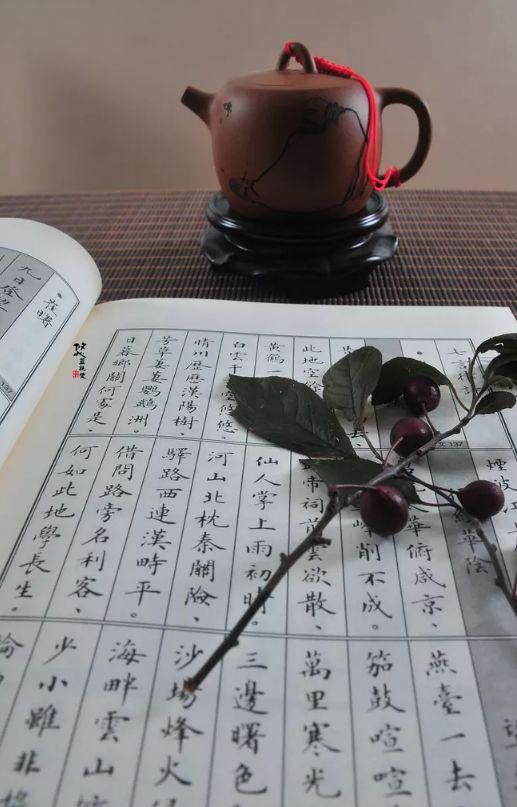 七言律
此地空餘
黃鶴一
白雲千 空悠悠。
晴川歷歷漢陽樹、
芳草萋萋鸚鵡洲
日暮鄉關何處是、
煙波江
經華陰
華俯咸京、
峰削不成。
帝祠前雲欲散、
仙人掌上雨初晴。
河山北枕秦關險、
驛路西連漢畤平。
借問路旁名利客、
何如此地學長生。
燕臺一去
笳鼓喧喧
萬里寒光
三邊曙色
沙場烽火
海畔雲山
少小雖非
論
崔曙
九日登望
137